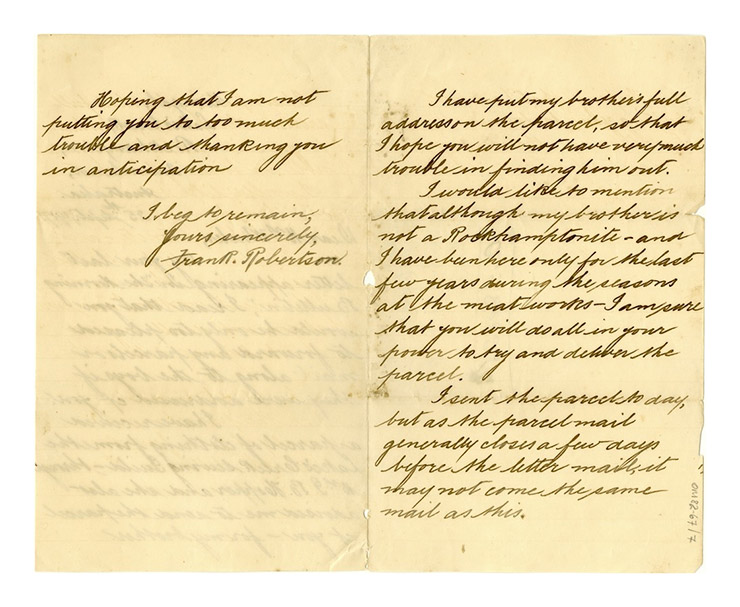 I have put my brother's full
address on the parcel, so that
I hope you will not have very much
trouble in finding him out.
I would like to mention
that although my brother is
not a Rockhamptonite - and
I have been here only for the last
few years during the seasons
at the meatworks - I am sure
that you will do all in your
power to try and deliver the
parcel.
I sent the parcel to day,
but as the parcel mail
generally closes a few days
before the letter mail, it
may not come the same
mail as this.
Hoping that I am not
putting you to too much
trouble and thanking you
in anticipation
I beg to remain,
Yours sincerely,
Frank. Robertson.
OM82-67/7